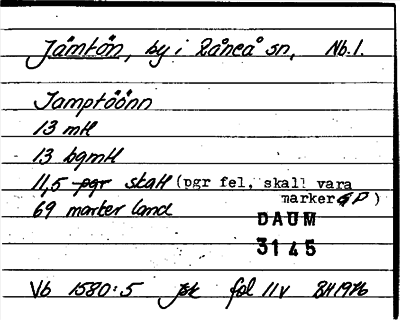 Jämtön, by i Råneå sn, Nb.l.
Jamptöönn
13 mtl
13 bgmtl
11,5 pgr skatt (pgr fel, skall vara
marker GP )
69 marker land
DAUM
3145
Vb 1580:5 jbk fol 11v BH 1976